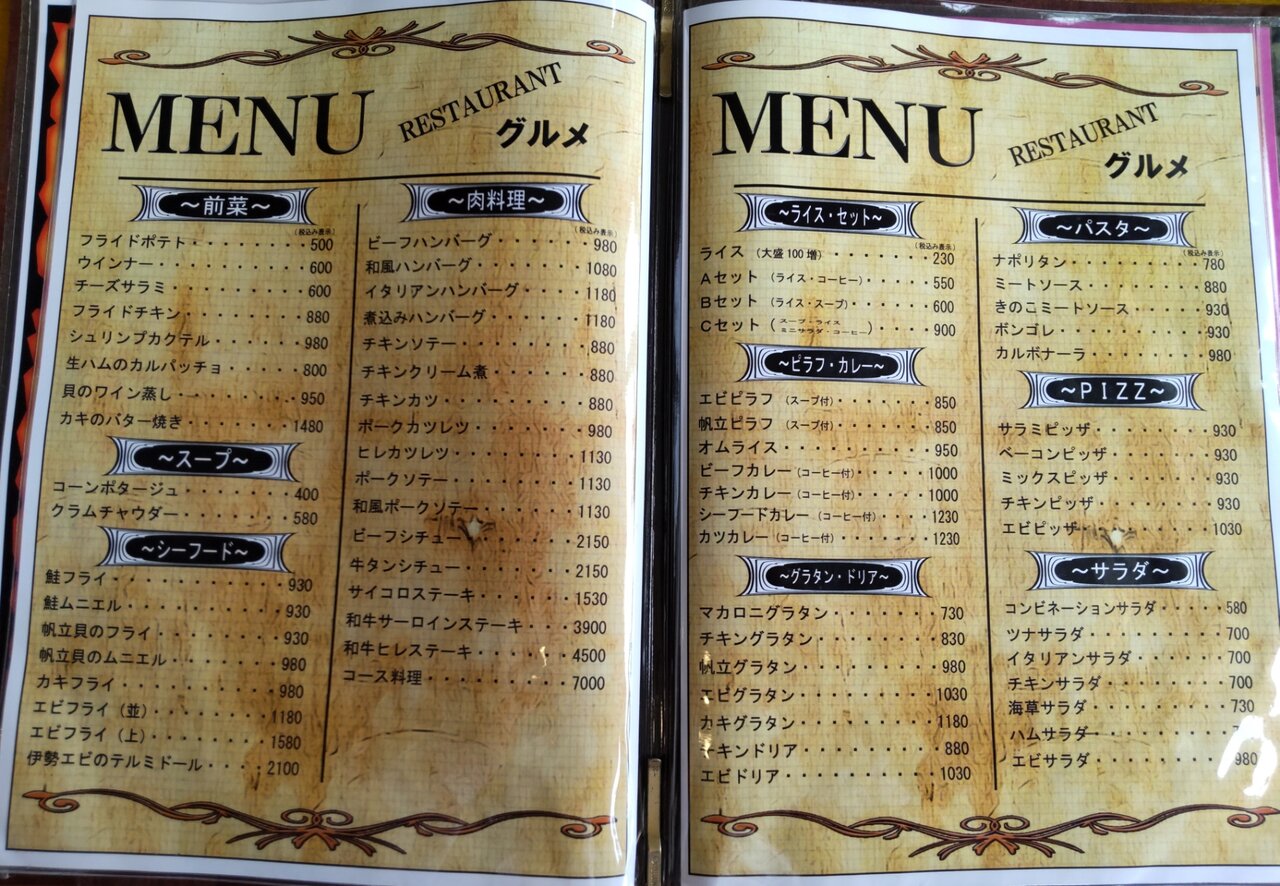 MENU
RESTAURANT
グルメ
～前菜～
(税込み表示)
フライドポテト・・・・・・・・500
ウインナー・・・・・・・・・・600
チーズサラミ・・・・・・・・・600
フライドチキン・・・・・・・・880
シュリンプカクテル・・・・・・980
生ハムのカルパッチョ・・・・・800
貝のワイン蒸し・・・・・・・・950
カキのバター焼き・・・・・・・1480
～スープ～
コーンポタージュ・・・・・・・400
クラムチャウダー・・・・・・・580
～シーフード～
鮭フライ・・・・・・・・・・・930
鮭ムニエル・・・・・・・・・・930
帆立貝のフライ・・・・・・・・930
帆立貝のムニエル・・・・・・・980
カキフライ・・・・・・・・・・980
エビフライ（並）・・・・・・・1180
エビフライ（上）・・・・・・・1580
伊勢エビのテルミドール・・・・2100
～肉料理～
(税込み表示)
ビーフハンバーグ・・・・・・980
和風ハンバーグ・・・・・・・1080
イタリアンハンバーグ・・・・1180
煮込みハンバーグ・・・・・・1180
チキンソテー・・・・・・・・880
チキンクリーム煮・・・・・・880
チキンカツ・・・・・・・・・880
ポークカツレツ・・・・・・・980
ヒレカツレツ・・・・・・・・1130
ポークソテー・・・・・・・・1130
和風ポークソテー・・・・・・1130
ビーフシチュー・・・・・・・2150
牛タンシチュー・・・・・・・2150
サイコロステーキ・・・・・・1530
和牛サーロインステーキ・・・3900
和牛ヒレステーキ・・・・・・4500
コース料理・・・・・・・・・7000
MENU
RESTAURANT
グルメ
～ライス・セット～
(税込み表示)
ライス（大盛100増）・・・・・・230
Aセット（ライス・コーヒー）・・・・550
Bセット（ライス・スープ）・・・・・600
Cセット（スープ・ライス ミニサラダ・コーヒー）・・・・900
～ピラフ・カレー～
エビピラフ（スープ付）・・・・・850
帆立ピラフ（スープ付）・・・・・850
オムライス・・・・・・・・・・950
ビーフカレー（コーヒー付）・・・・1000
チキンカレー（コーヒー付）・・・・1000
シーフードカレー（コーヒー付）・・・1230
カツカレー（コーヒー付）・・・・・1230
～グラタン・ドリア～
マカロニグラタン・・・・・・・730
チキングラタン・・・・・・・・830
帆立グラタン・・・・・・・・・980
エビグラタン・・・・・・・・・1030
カキグラタン・・・・・・・・・1180
チキンドリア・・・・・・・・・880
エビドリア・・・・・・・・・・1030
～パスタ～
(税込み表示)
ナポリタン・・・・・・・・780
ミートソース・・・・・・・880
きのこミートソース・・・・930
ボンゴレ・・・・・・・・・930
カルボナーラ・・・・・・・980
～PIZZ～
サラミピッザ・・・・・・・930
ベーコンピッザ・・・・・・930
ミックスピッザ・・・・・・930
チキンピッザ・・・・・・・930
エビピッザ・・・・・・・・1030
～サラダ～
コンビネーションサラダ・・・・580
ツナサラダ・・・・・・・・700
イタリアンサラダ・・・・・700
チキンサラダ・・・・・・・700
海草サラダ・・・・・・・・730
ハムサラダ・・・・・・・・
エビサラダ・・・・・・・・980